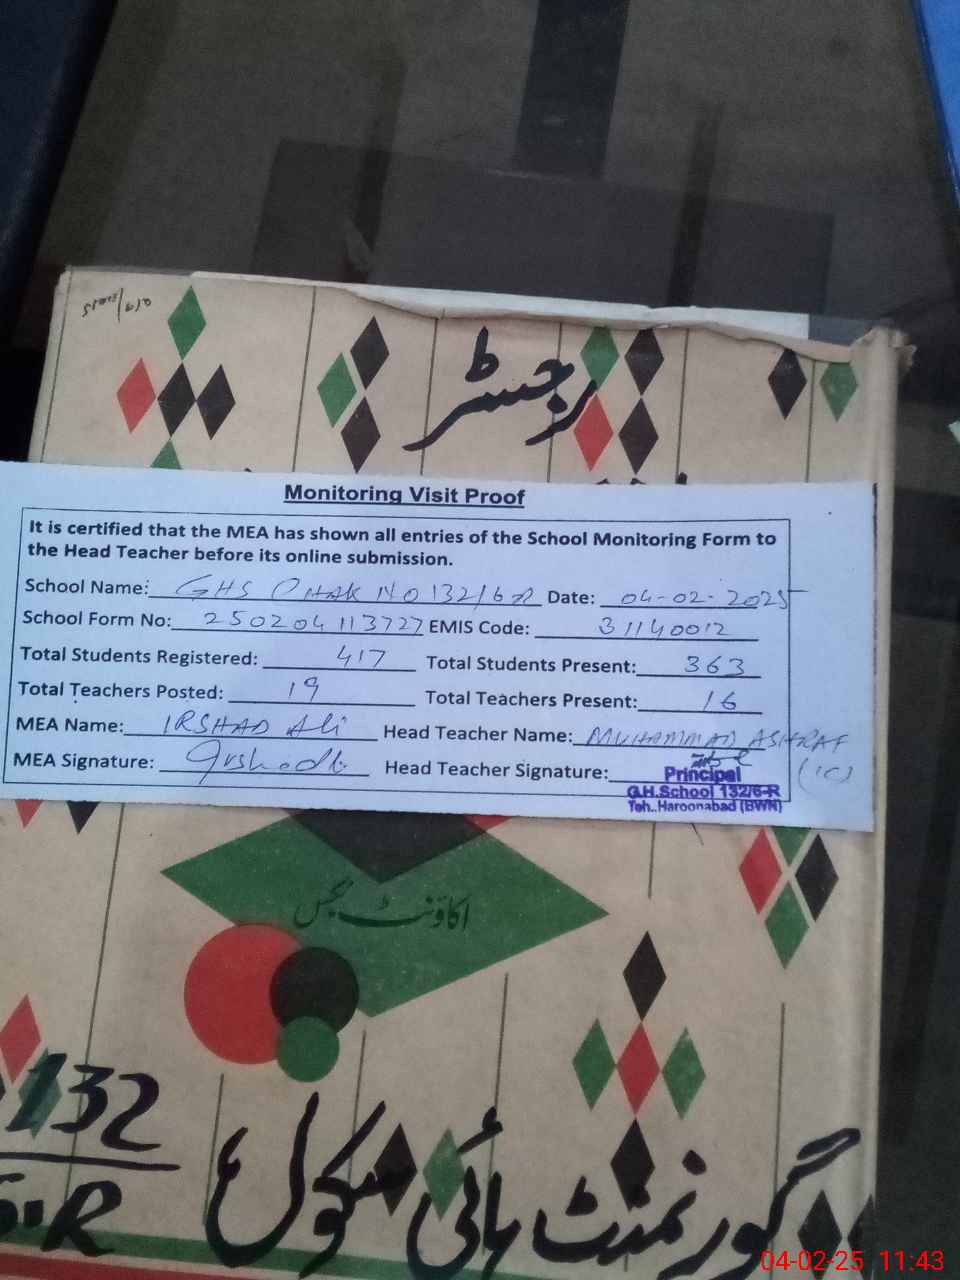 رجسٹر
Monitoring Visit Proof
It is certified that the MEA has shown all entries of the School Monitoring Form to
the Head Teacher before its online submission.
School Name: GHS CHAK NO 132/6R Date: 04-02-2025
School Form No: 250204113727 EMIS Code: 31140012
Total Students Registered: 417 Total Students Present: 363
Total Teachers Posted: 19 Total Teachers Present: 16
MEA Name: IRSHAD Ali Head Teacher Name: MUHAMMAD ASHRAF
MEA Signature: Head Teacher Signature: (IC)
Principal
G.H.School 132/6-R
Teh..Haroonabad (BWN)
اکاؤنٹ بکس
گورنمنٹ ہائی سکول 132
6.R
04-02-25 11:43